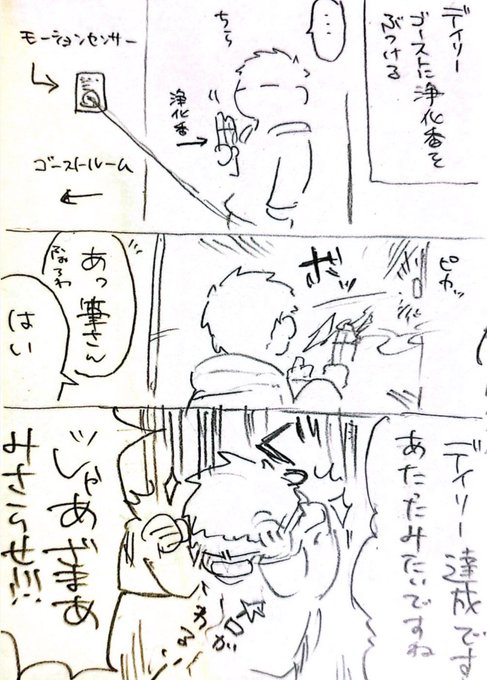 デイリー
ゴーストに浄化香を
ぶつける
…
ちら
浄化香
モーションセンサー
ゴーストルーム
ピカッ
ボッ
あっ筆さん
はい
デイリー達成です
あたったみたいですね
じゃあざまあ
みさらせ!!!